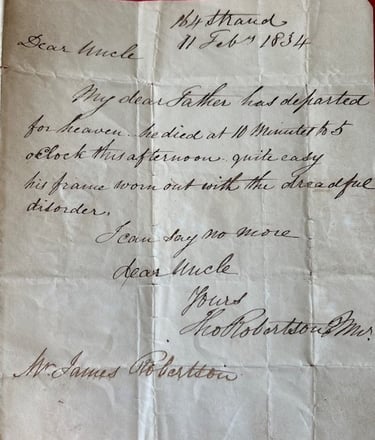 164 Strand
11 Feby 1834
Dear Uncle
My dear Father has departed
for heaven he died at 10 Minutes to 5
oClock this afternoon quite easy
his frame worn out with the dreadful
disorder.
I can say no more
dear Uncle
Yours
Tho Robertson
Mr James Robertson